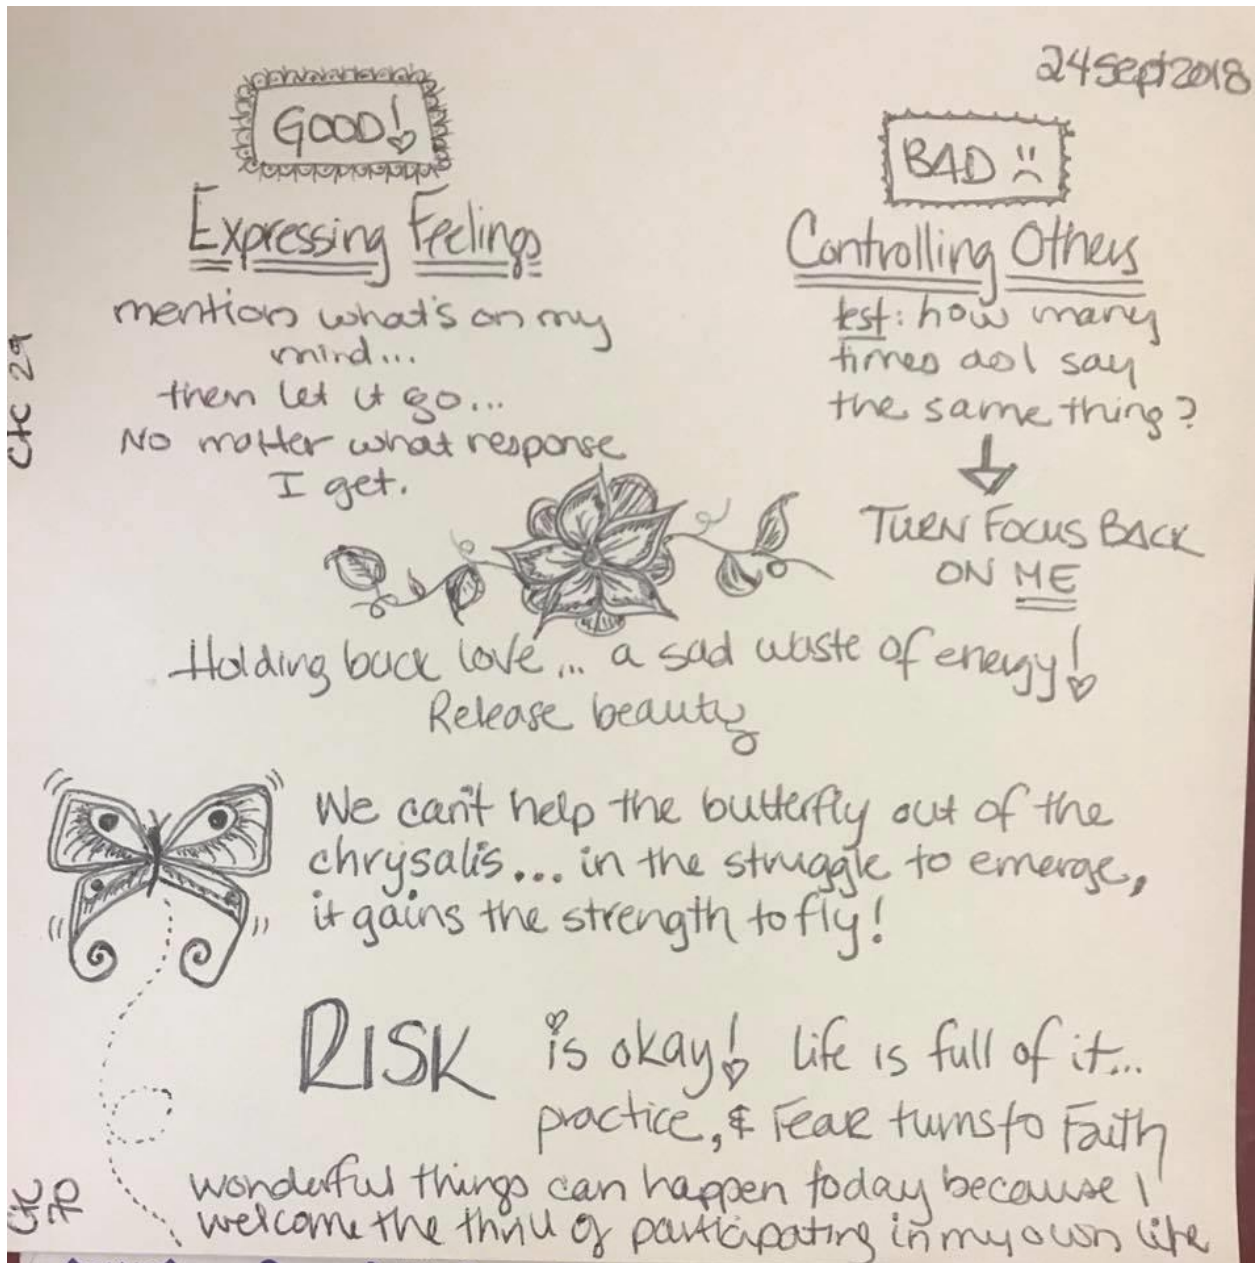 24 Sept 2018
GOOD!
Expressing Feelings
mention what's on my
mind...
then let it go...
No matter what response
I get.
BAD
Controlling Others
test: how many
times do I say
the same thing?
TURN FOCUS BACK
ON ME
CtC 29
Holding back love... a sad waste of energy!
Release beauty
We can't help the butterfly out of the
chrysalis... in the struggle to emerge,
it gains the strength to fly!
RISK is okay! life is full of it...
practice, & Fear turns to Faith
wonderful things can happen today because I
welcome the thrill of participating in my own life
CtC